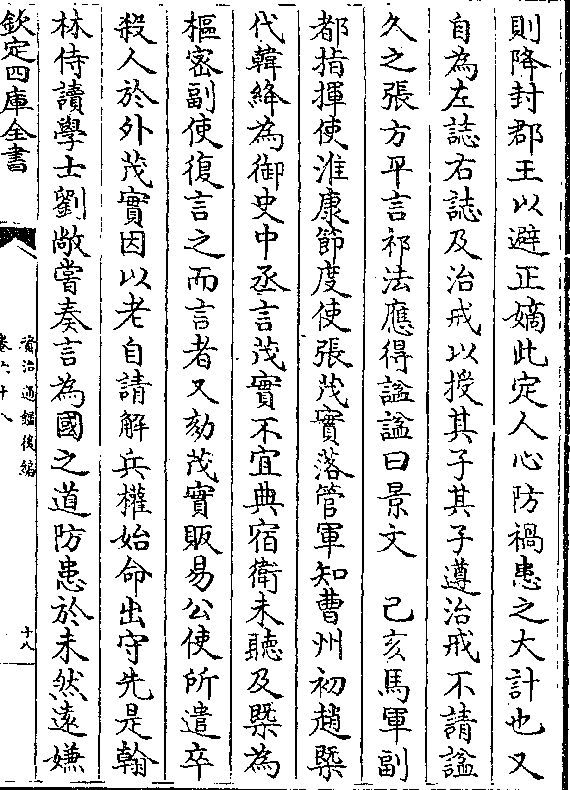 則降封郡王以避正嫡此定人心防禍患之大計也又
自為左誌右誌及治戒以授其子其子遵治戒不請諡
久之張方平言祁法應得諡諡曰景文　己亥馬軍副
都指揮使淮康節度使張茂實落管軍知曹州初趙槩
代韓絳為御史中丞言茂實不宜典宿衛未聽及槩為
樞密副使復言之而言者又劾茂實販易公使所遣卒
殺人於外茂實因以老自請解兵權始命出守先是翰
林侍讀學士劉敞嘗奏言為國之道防患於未然遠嫌
欽定四庫全書
資治通鑑後編
卷六十八
十八